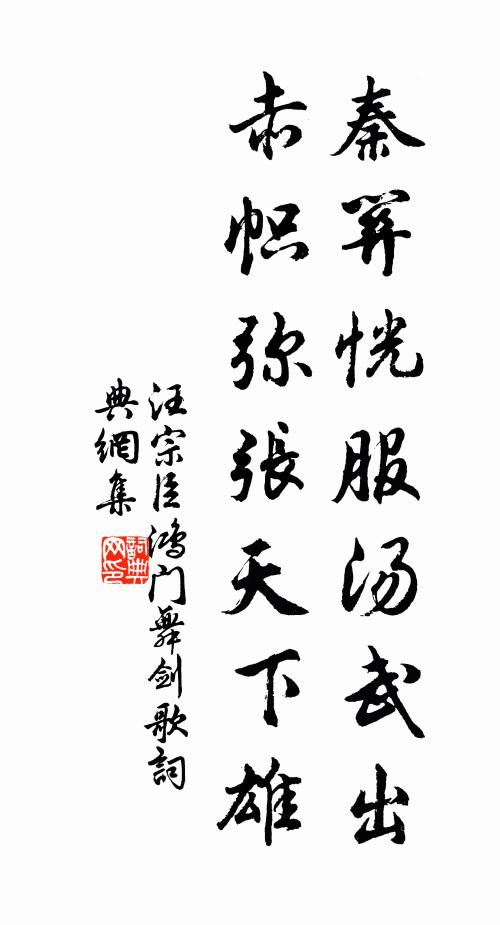 秦羿恍服汤武出
赤帜弥張天下雄
汪宗臣鸿门舞剑歌詞
典網集
詞典
网印